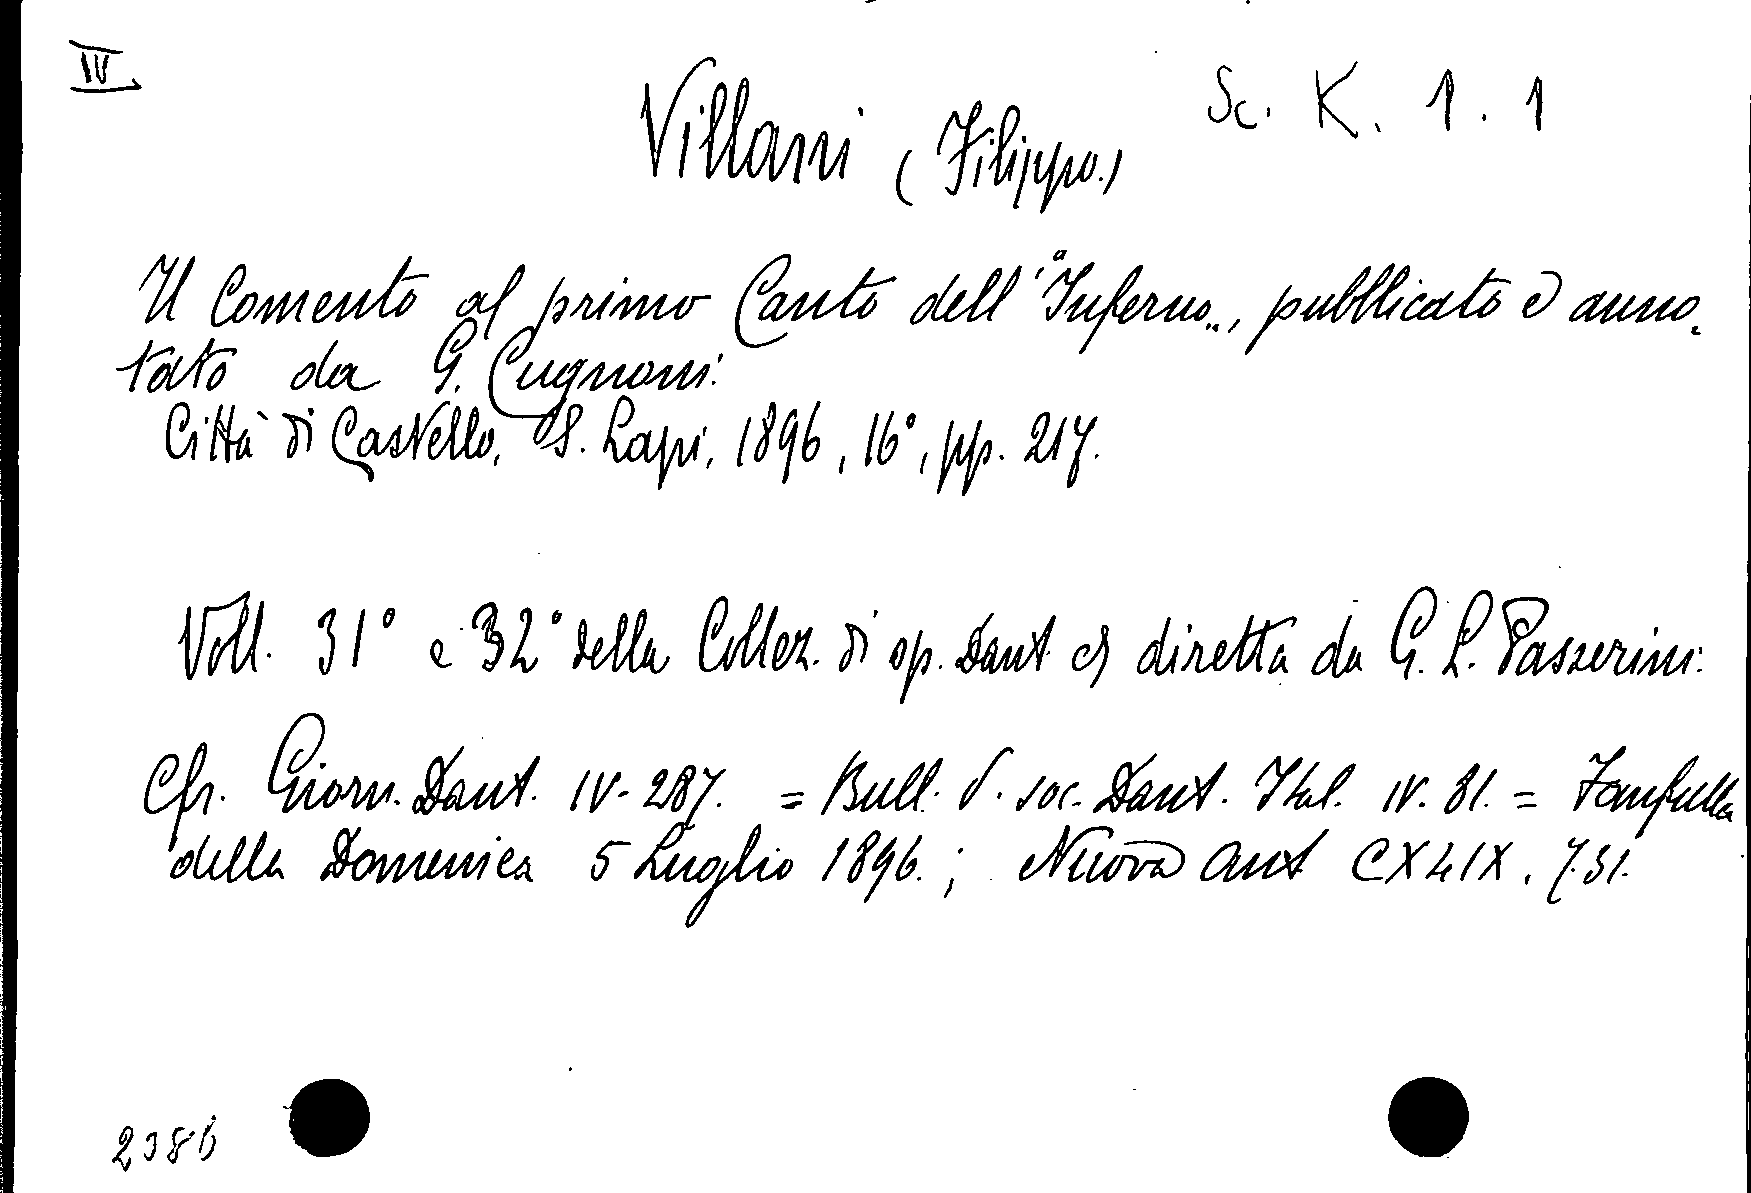 IV
Sc. K. 1. 1
Villani (Filippo.)
Il Comento al primo Canto dell' "Inferno„, pubblicato e anno-
tato da G. Cugnoni.
Città di Castello, S. Lapi, 1896, 16°, pp. 217.
Voll. 31° e 32° della Collez. di op. Dant. diretta da G. L. Passerini.
Cfr. Giorn. Dant. IV. 287. = Bull. d. soc. Dant. Ital. IV. 81. = Fanfulla
della Domenica 5 Luglio 1896.; Nuova Ant CXLIX.
2386